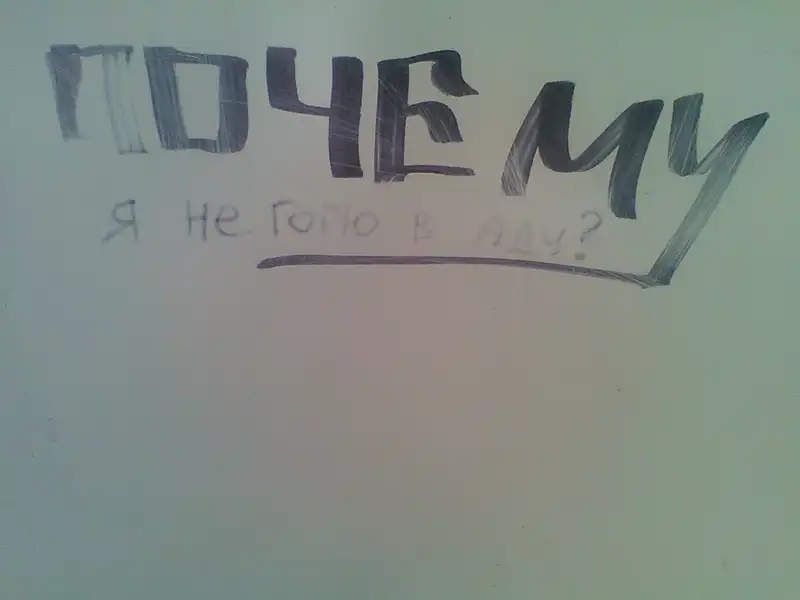 ПОЧЕМУ
Я не гоПЮ в АДУ?